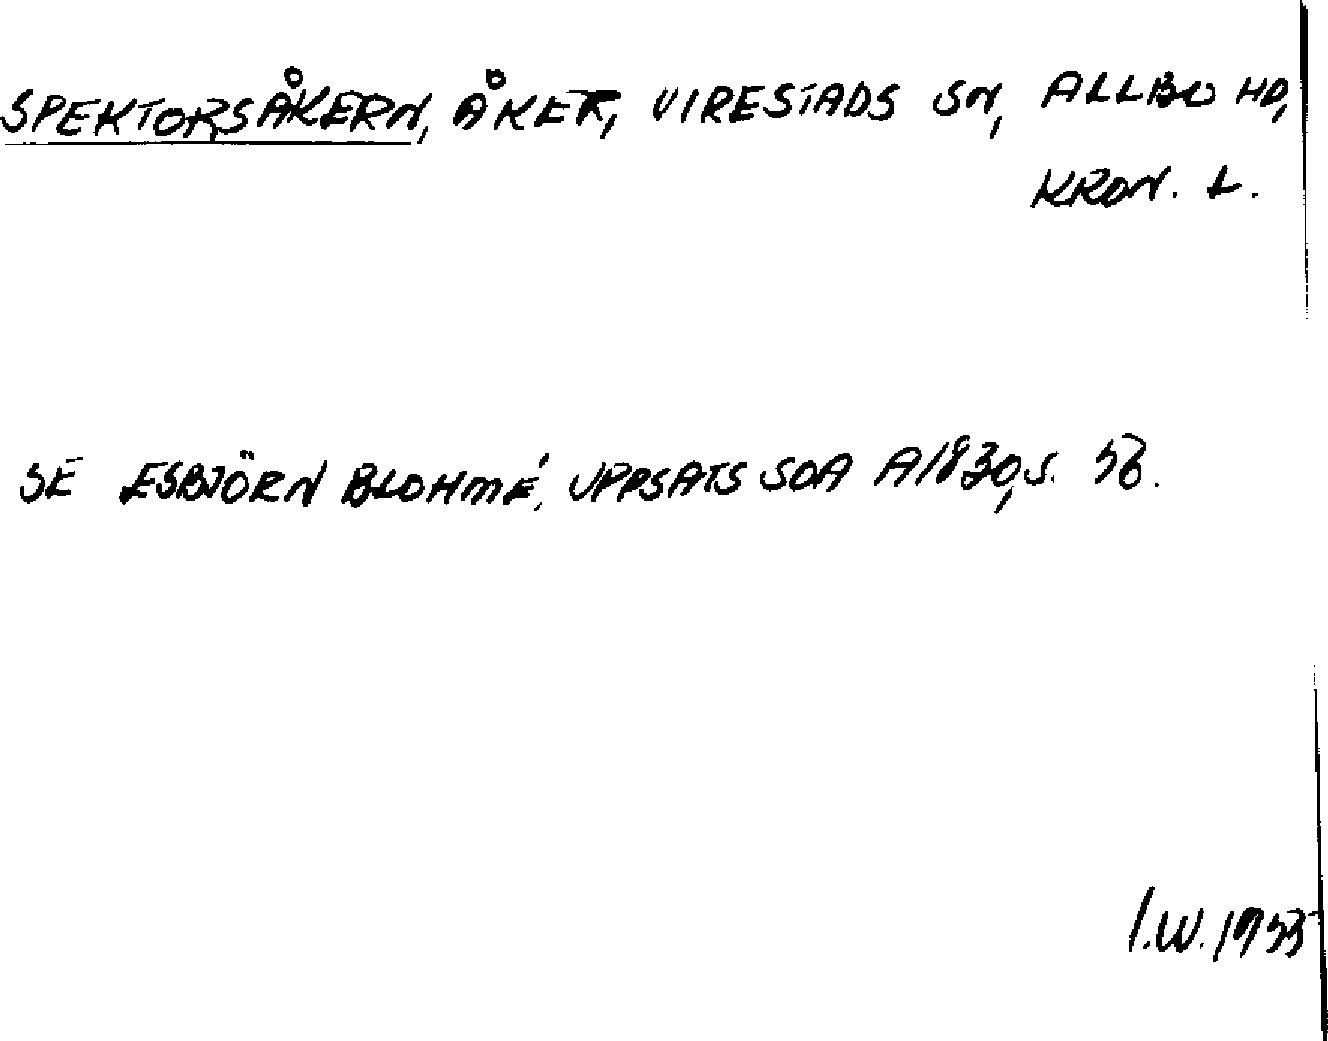 SPEKTORSÅKERN, ÅKER, VIRESTADS SN, ALLBO HD,
KRON. L.
SE ESBJÖRN BLOHMÉ, UPPSATS SOA A1830, S. 56.
I.W. 1953